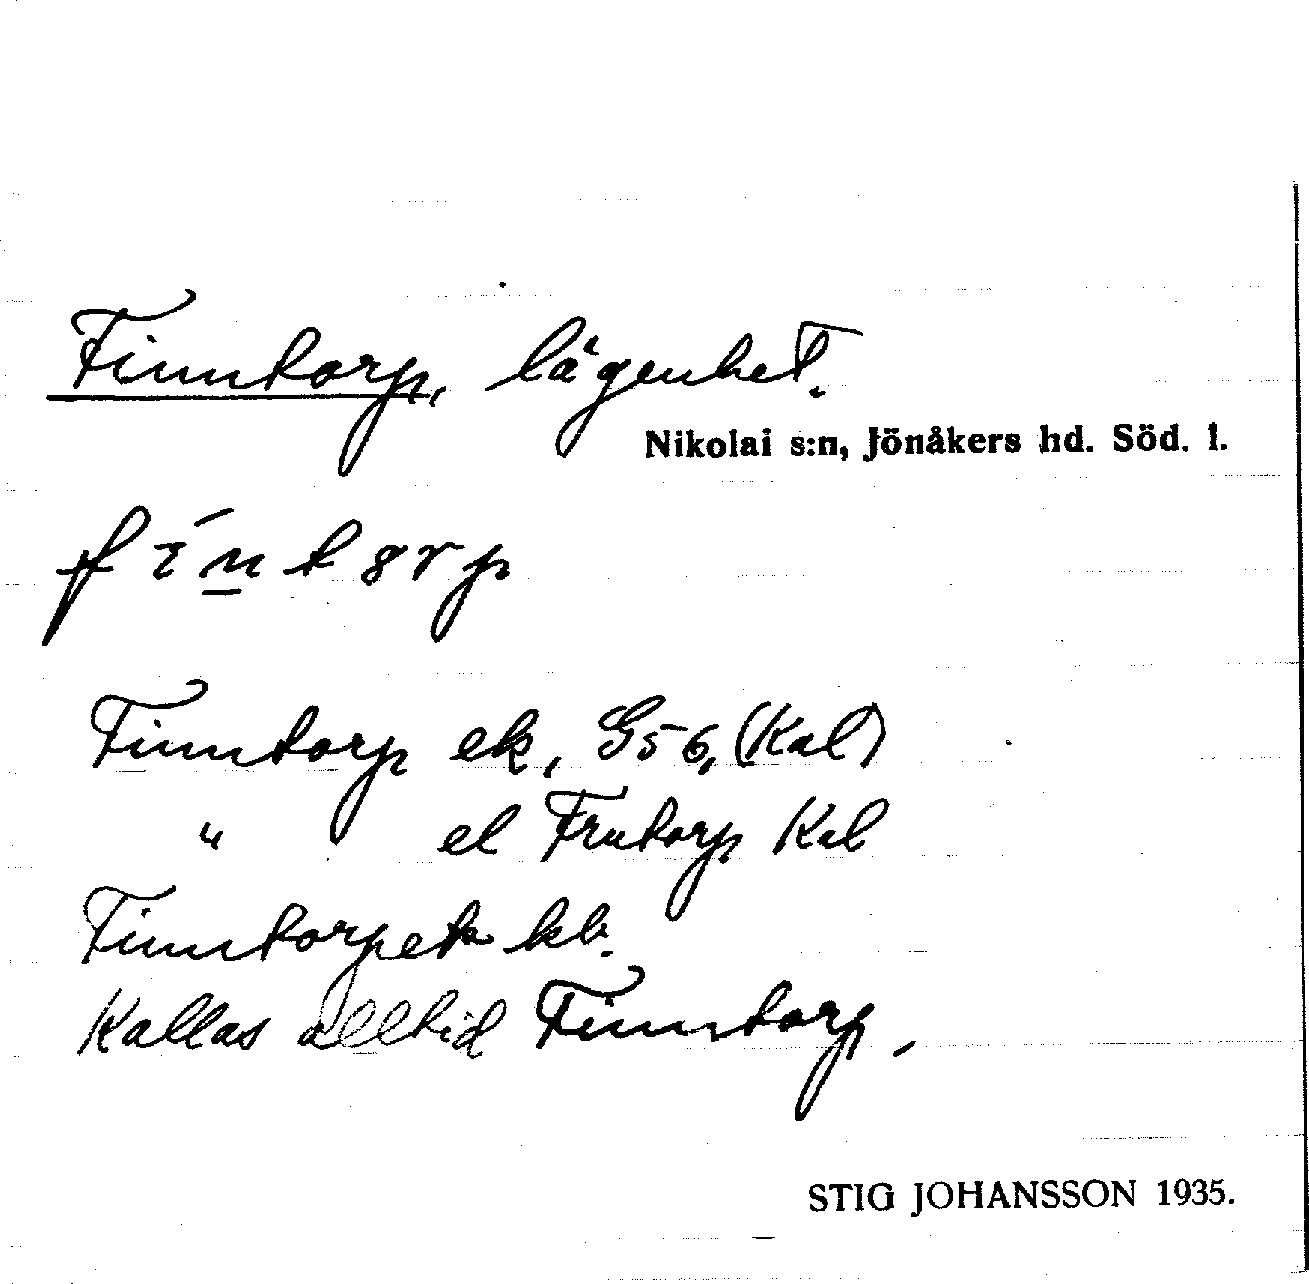 Finntorp, lägenhet.
Nikolai s:n, Jönåkers hd. Söd. l.
Finntorp ek, G56, (Kal)
" el Frutorp Kal
Finntorpet kb.
Kallas alltid Finntorp.
STIG JOHANSSON 1935.